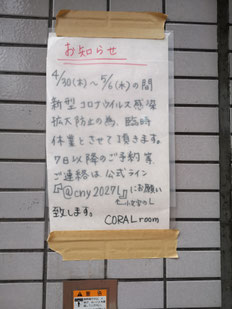 お知らせ
4/30(木)〜5/6(水)の間
新型コロナウイルス感染
拡大防止の為、臨時
休業とさせて頂きます。
7日以降のご予約等
ご連絡は公式ライン
『@cny2027l』にお願い
↑小文字のL
致します。
CORAL room
注意